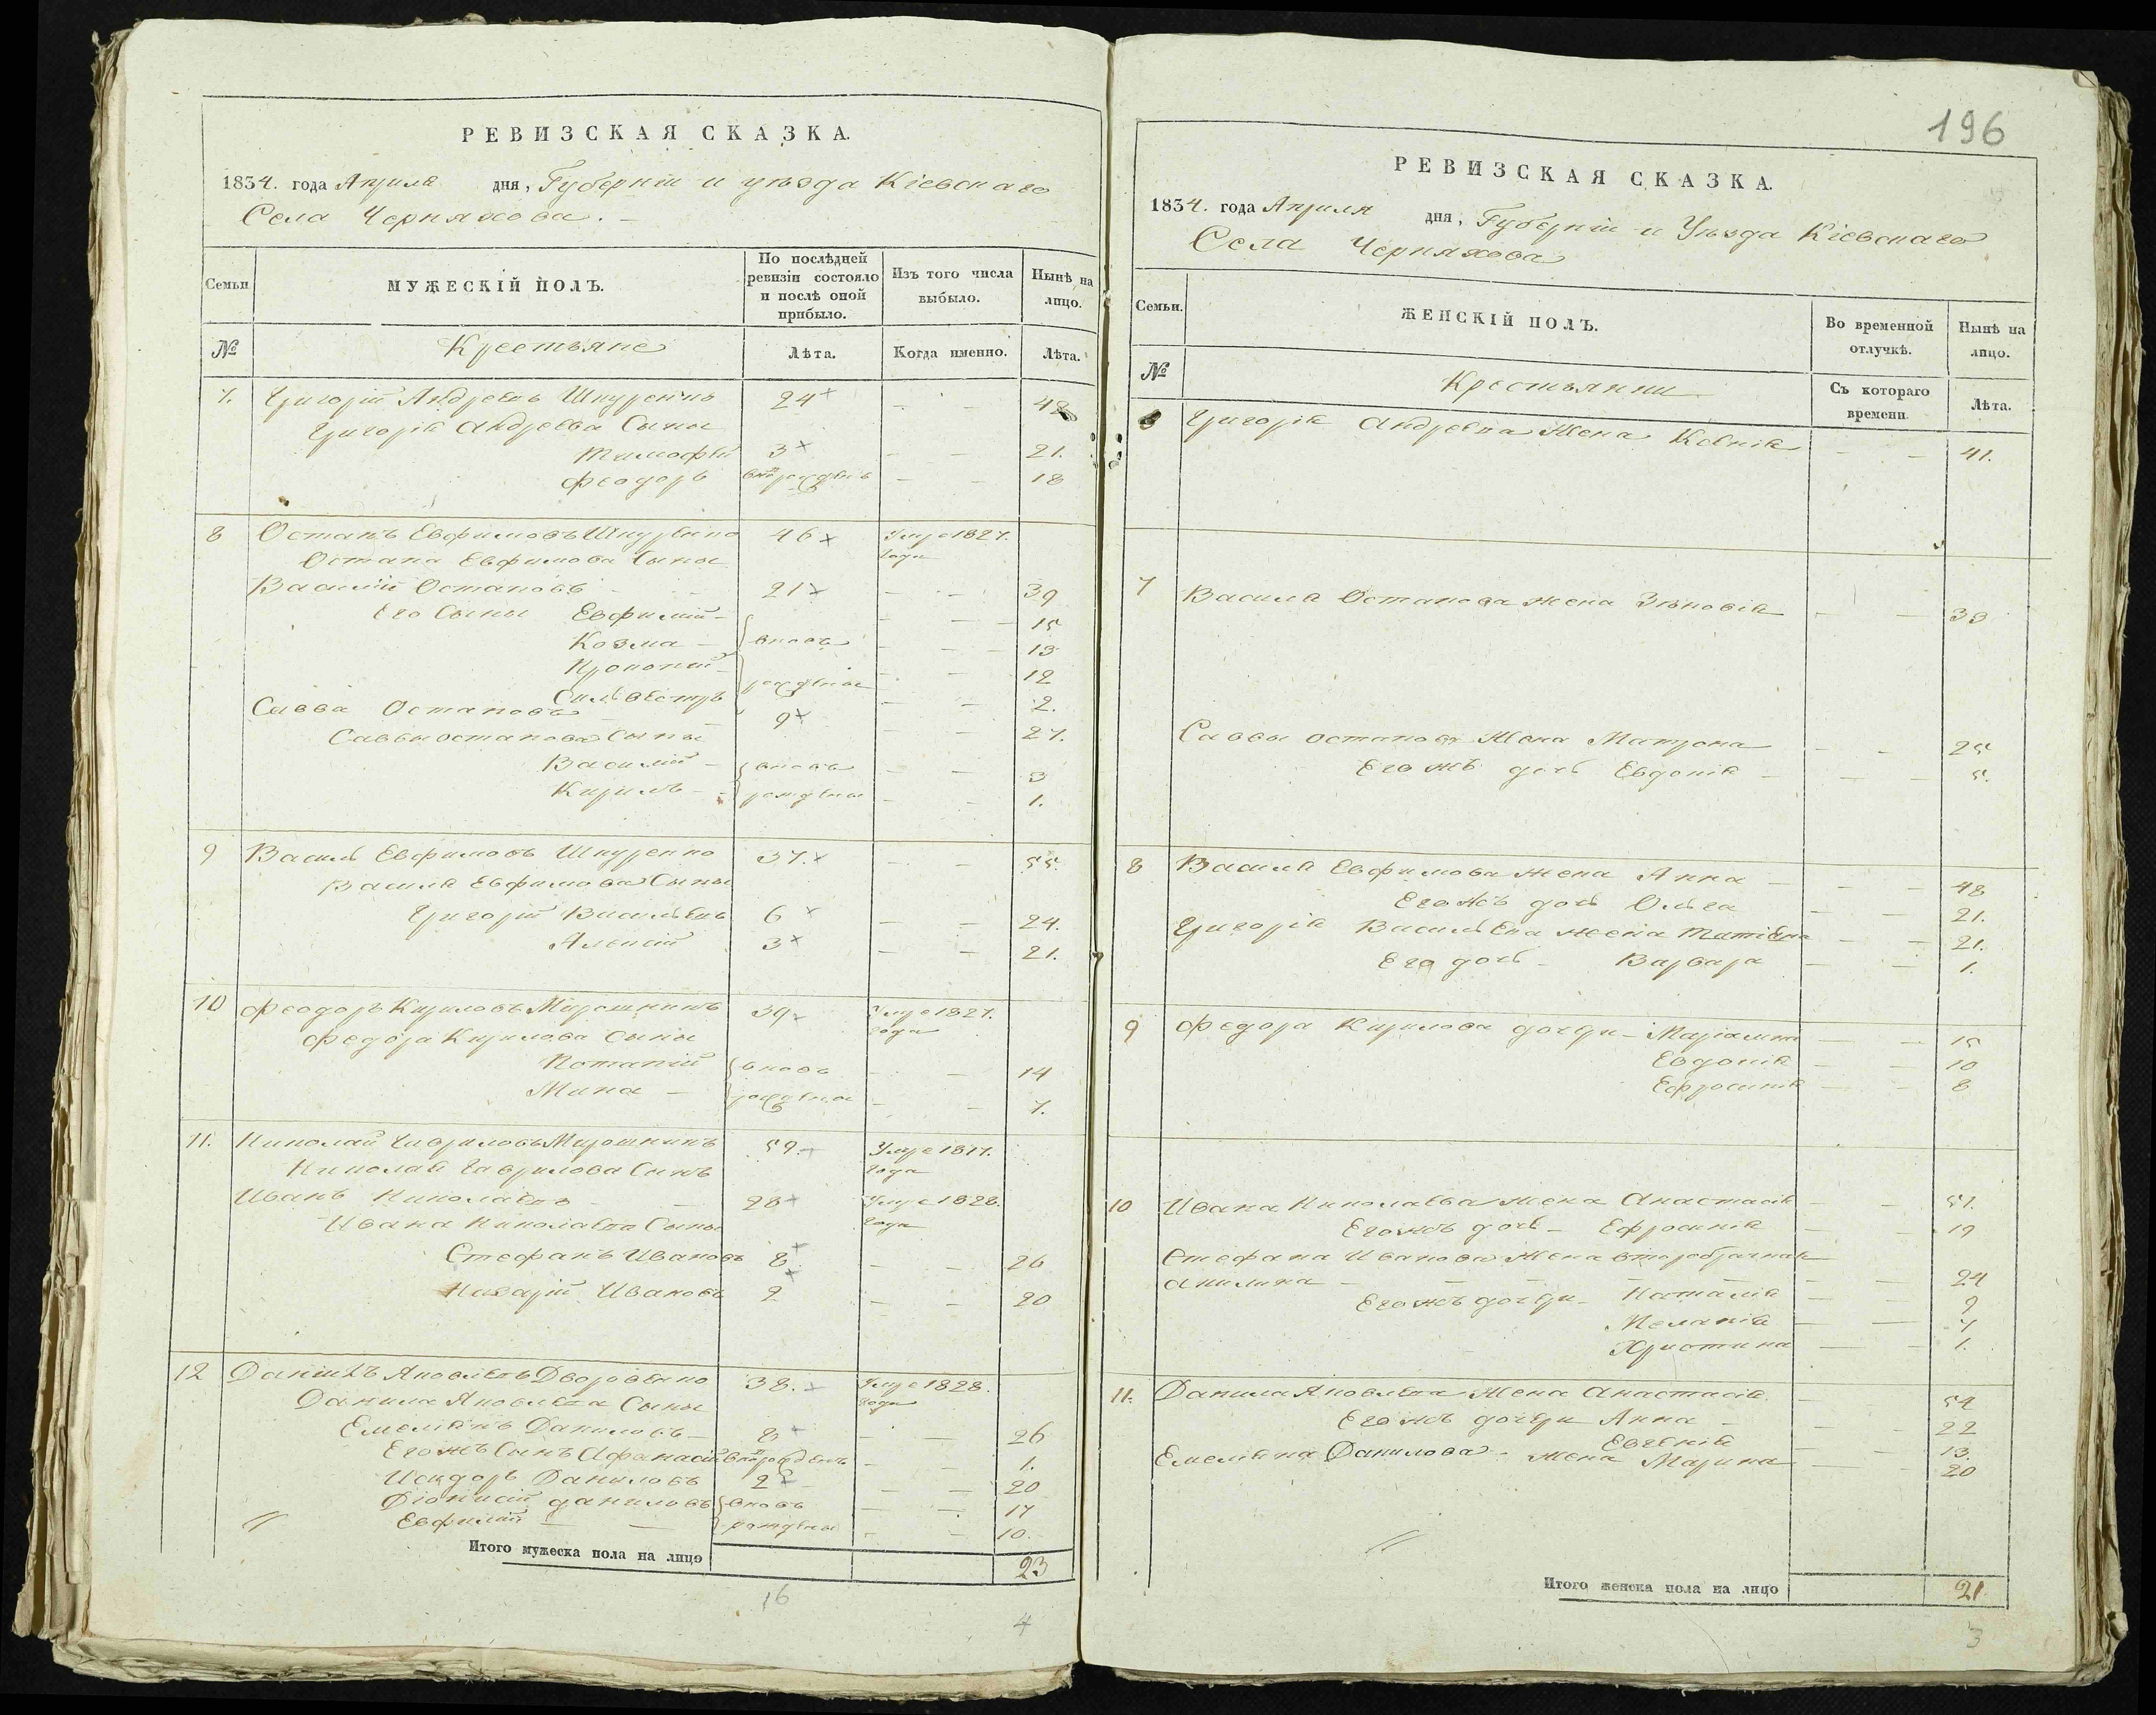 РЕВИЗСКАЯ СКАЗКА.
1834. года Апреля дня, Губерніи и уѣзда Кіевскаго
Села Черняхова. –
Семьи МУЖЕСКІЙ ПОЛЪ. По послѣдней ревизіи состояло и послѣ оной прибыло. Изъ того числа выбыло. Нынѣ на лицо.
№ Крестьяне Лѣта. Когда именно. Лѣта.
7. Григорій Андреевъ 24 – – 48
Григорія Андреева Сыны
Тимофей 3 – – 21.
Феодоръ – – 18
8 Остапъ Евфимовъ 46 Умре 1827. года
Остапа Евфимова Сыны
Василій Остаповъ 21 – – 39
Его Сыны Евфимій – вновь – – 15
Козма – – – 13
Прокопій – рождены – – 12
Сильвестръ – – 2.
Савва Остаповъ 9 – – 27.
Саввы Остапова Сыны
Василій – вновь – – 3
Кирилъ – рождены – – 1.
9 Василь Евфимовъ Шкуренко 37. – – 55.
Василя Евфимова Сыны
Григорій Васильевъ 6 – – 24.
Алексій 3 – – 21.
10 Феодоръ Кириловъ Мирошникъ 39 Умре 1827. года
Федора Кирилова Сыны
Потапій вновь – – 14
Мина – рождены – – 7.
11. Николай Гавриловъ Мирошникъ 59. Умре 1817. года
Николая Гаврилова Сынъ
Иванъ Николаевъ – 28 Умре 1828. года
Ивана Николаева Сыны
Стефанъ Ивановъ 8. – – 26
Макарій Ивановъ 2 – – 20
12 Данилъ Яковлевъ 38. Умре 1828. года
Данила Яковлева Сыны
Емельянъ Даниловъ – 8 – – 26
Егожъ Сынъ Афанасій – – 1.
Исидоръ Даниловъ 2 – – 20
Діонисій Даниловъ вновь – – 17
Евфимій – – рождены – – 10.
Итого мужеска пола на лицо 23
16
4
196
РЕВИЗСКАЯ СКАЗКА.
1834. года Апреля дня, Губерніи и Уѣзда Кіевскаго
Села Черняхова
Семьи. ЖЕНСКІЙ ПОЛЪ. Во временной отлучкѣ. Нынѣ на лицо.
№ Съ котораго времени. Лѣта.
6 Григорія Андреева Жена Ксенія – – 41.
7 Василя Остапова жена Зѣновія – – 33
Саввы Остапова Жена Матрона – – 25
Егожъ дочь Евдокія – – – 5.
8 Василя Евфимова жена Анна – – – 48
Егожъ дочь Ольга – – 21.
Григорія Васильева жена Татіяна – – 21.
Его дочь – Варвара – – 1.
9 Федора Кирилова дочери – – – 15
Евдокія – – 10
Ефросинія – – 8
10 Ивана Николаева жена Анастасія – – 51.
Егожъ дочь – Ефросинія – – 19
Стефана Иванова Жена второбрачная
Акилина – – – – – – 24
Егожъ дочери – Наталія – – 9
Меланія – – 4
Христина – – 1.
11. Данила Яковлева Жена Анастасія – – 54
Егожъ дочери Анна – – – 22
Евгенія – – 13.
Емельяна Данилова – жена Марина – – 20
Итого женска пола на лицо 21
3